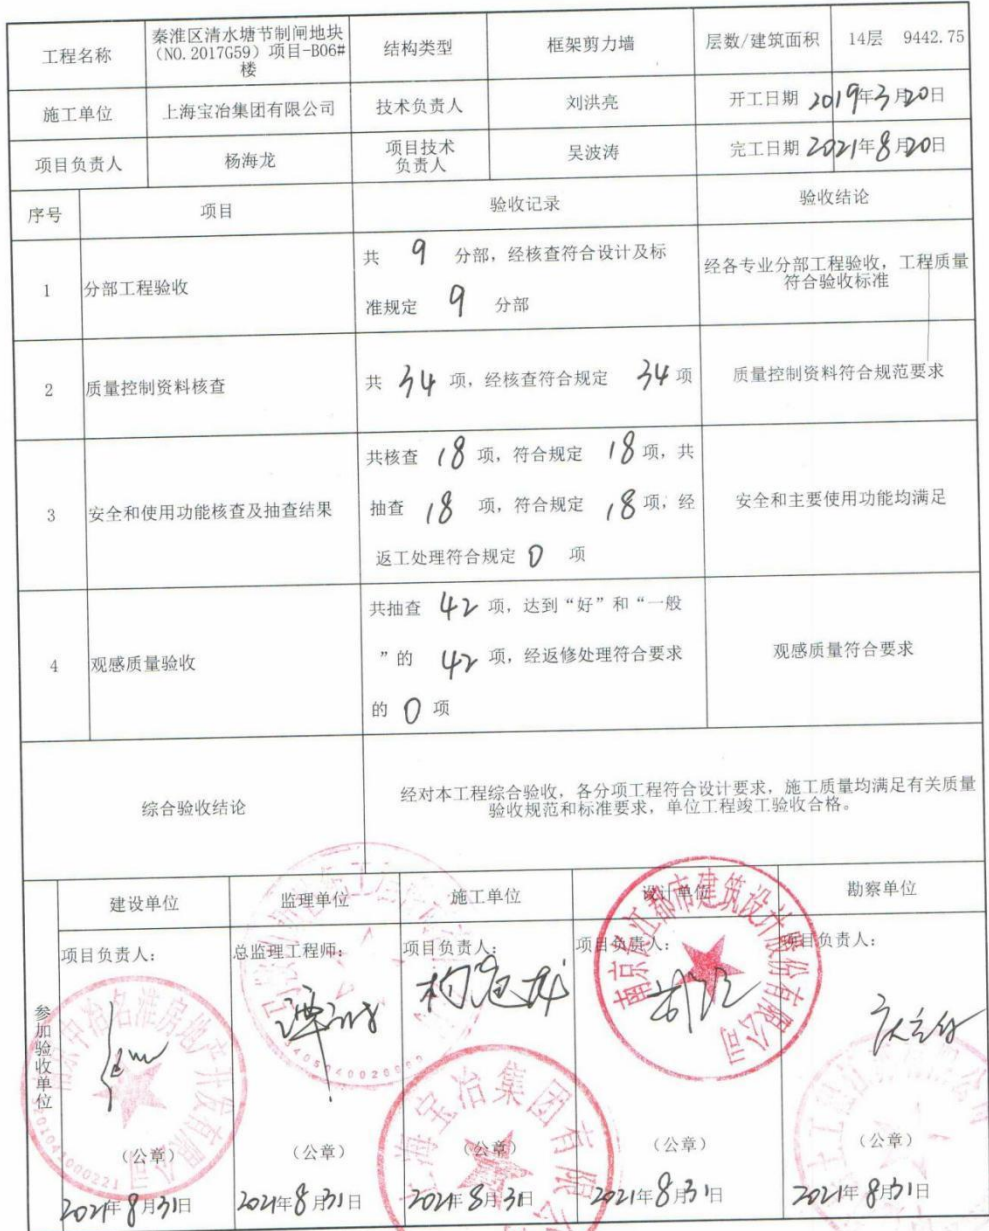 工程名称
秦淮区清水塘节制闸地块
(NO.2017G59)项目-B06#
楼
结构类型
框架剪力墙
层数/建筑面积
14层 9442.75
施工单位
上海宝冶集团有限公司
技术负责人
刘洪亮
开工日期 2019年3月20日
项目负责人
杨海龙
项目技术
负责人
吴波涛
完工日期 2021年8月20日
序号
项目
验收记录
验收结论
1
分部工程验收
共 9 分部，经核查符合设计及标
准规定 9 分部
经各专业分部工程验收，工程质量
符合验收标准
2
质量控制资料核查
共 34 项，经核查符合规定 34项
质量控制资料符合规范要求
3
安全和使用功能核查及抽查结果
共核查 18 项，符合规定 18项，共
抽查 18 项，符合规定 18项，经
返工处理符合规定 0 项
安全和主要使用功能均满足
4
观感质量验收
共抽查 42 项，达到“好”和“一般
”的 42 项，经返修处理符合要求
的 0 项
观感质量符合要求
综合验收结论
经对本工程综合验收，各分项工程符合设计要求，施工质量均满足有关质量
验收规范和标准要求，单位工程竣工验收合格。
参加验收单位
建设单位
监理单位
施工单位
设计单位
勘察单位
项目负责人：
总监理工程师：
项目负责人：
项目负责人：
项目负责人：
杨海龙
南京长江都市建筑设计股份有限公司
上海宝冶集团有限
（公章）
（公章）
（公章）
（公章）
（公章）
2021年8月31日
2021年8月31日
2021年8月31日
2021年8月31日
2021年8月31日